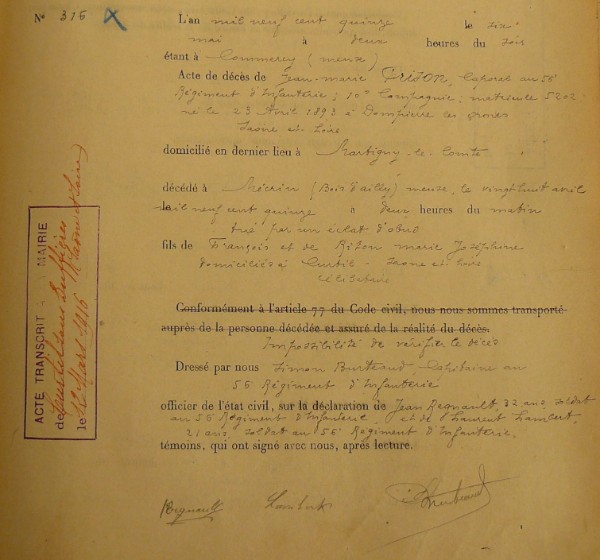 N° 316
L'an mil neuf cent quinze le six
mai à deux heures du soir
étant à Commercy (meuse)
Acte de décès de Jean-marie Caporal au 56e
Régiment d'Infanterie; 10e Compagnie; matricule 5202
né le 23 Avril 1893 à Dompierre les ormes
Saone et Loire
domicilié en dernier lieu à Martigny-le-Comte
décédé à Mécrin (Bois d'ailly) meuse, le vingt huit avril
le mil neuf cent quinze à deux heures du matin
tué par un éclat d'obus
fils de François et de marie Joséphine
domiciliés à Curtil - Saone et Loire
Célibataire
Conformément à l'article 77 du Code civil, nous nous sommes transporté
auprès de la personne décédée et assuré de la réalité du décès.
Impossibilité de vérifier le décès
Dressé par nous Simon Burteaud, Capitaine au
56 Régiment d'Infanterie
officier de l'état civil, sur la déclaration de Jean Regnault, 32 ans, soldat
au 56 Régiment d'Infanterie, et de Laurent Lambert,
21 ans, soldat au 56e Régiment d'Infanterie,
témoins, qui ont signé avec nous, après lecture.
Regnault Lambert Burteaud
ACTE TRANSCRIT - MAIRIE
de Curtil sous Buffières
le 12 Mars 1916 (Saone et Loire)